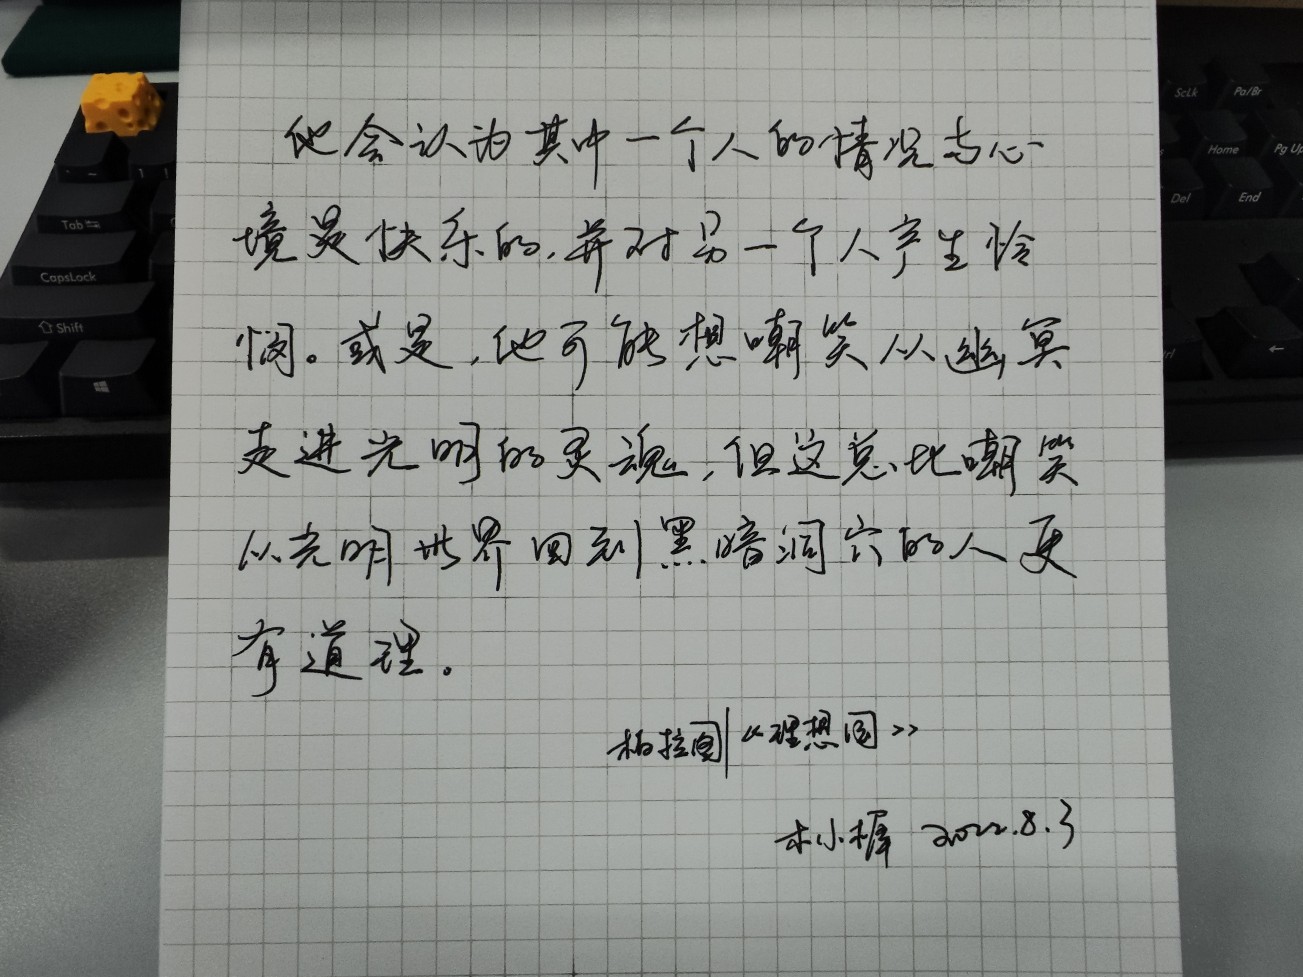 他会认为其中一个人的情况与心
境是快乐的,并对另一个人产生怜
悯。或是,他可能想嘲笑从幽冥
走进光明的灵魂,但这总比嘲笑
从光明世界回到黑暗洞穴的人更
有道理。
柏拉图|《理想国》
木小樨 2022.8.3
Tab
CapsLock
Shift
ScLk
Pa/Br
Home
Pg Up
Del
End